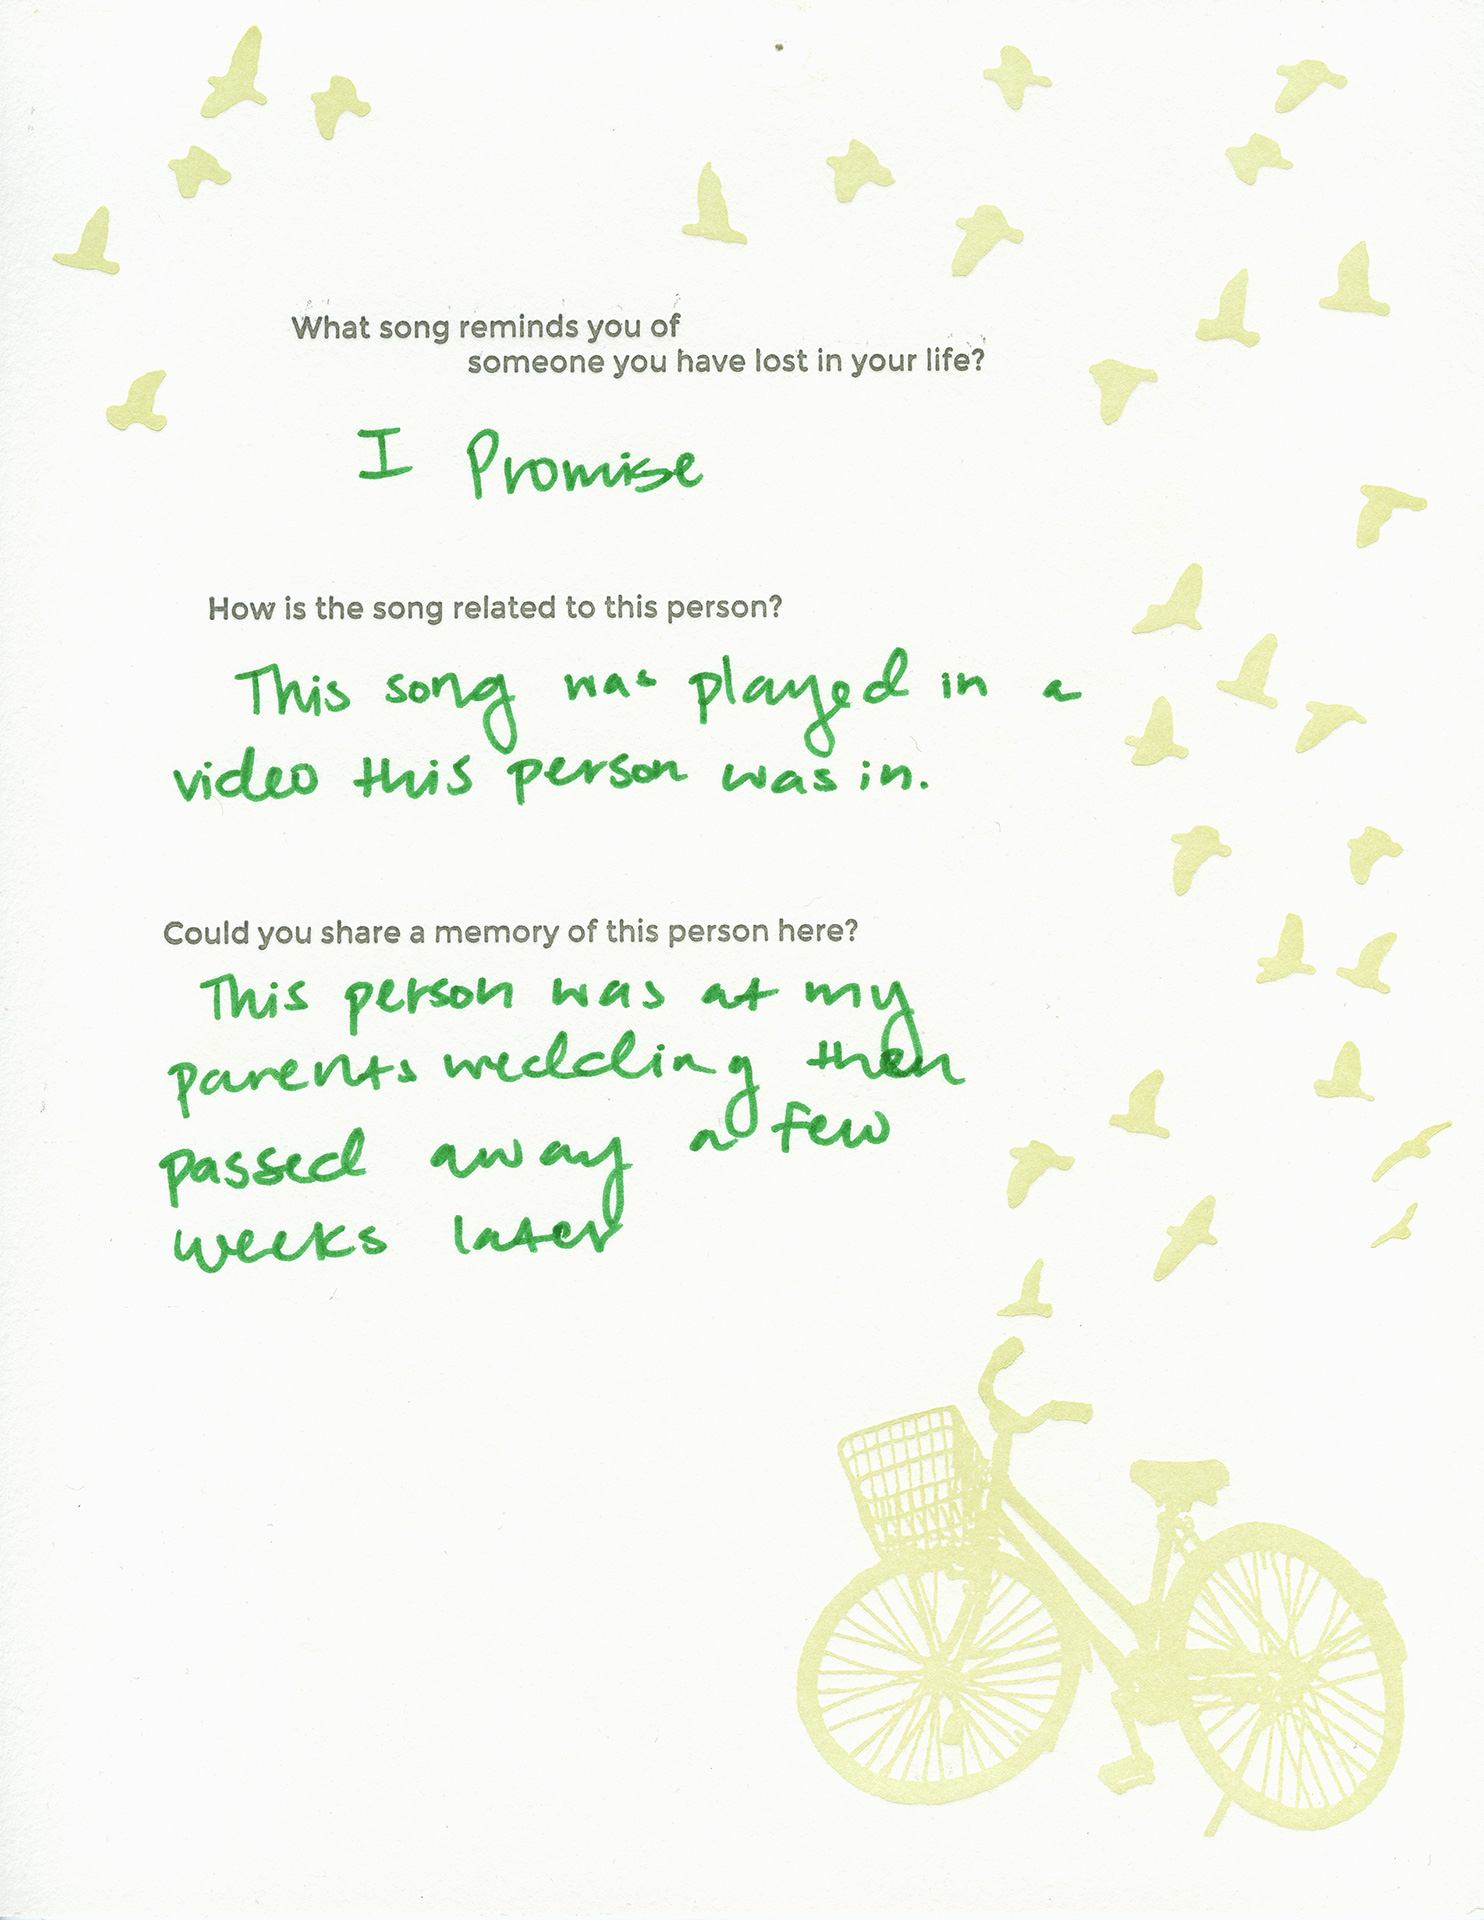 What song reminds you of
someone you have lost in your life?
I Promise
How is the song related to this person?
This song was played in a
video this person was in.
Could you share a memory of this person here?
This person was at my
parents wedding then
passed away a few
weeks later